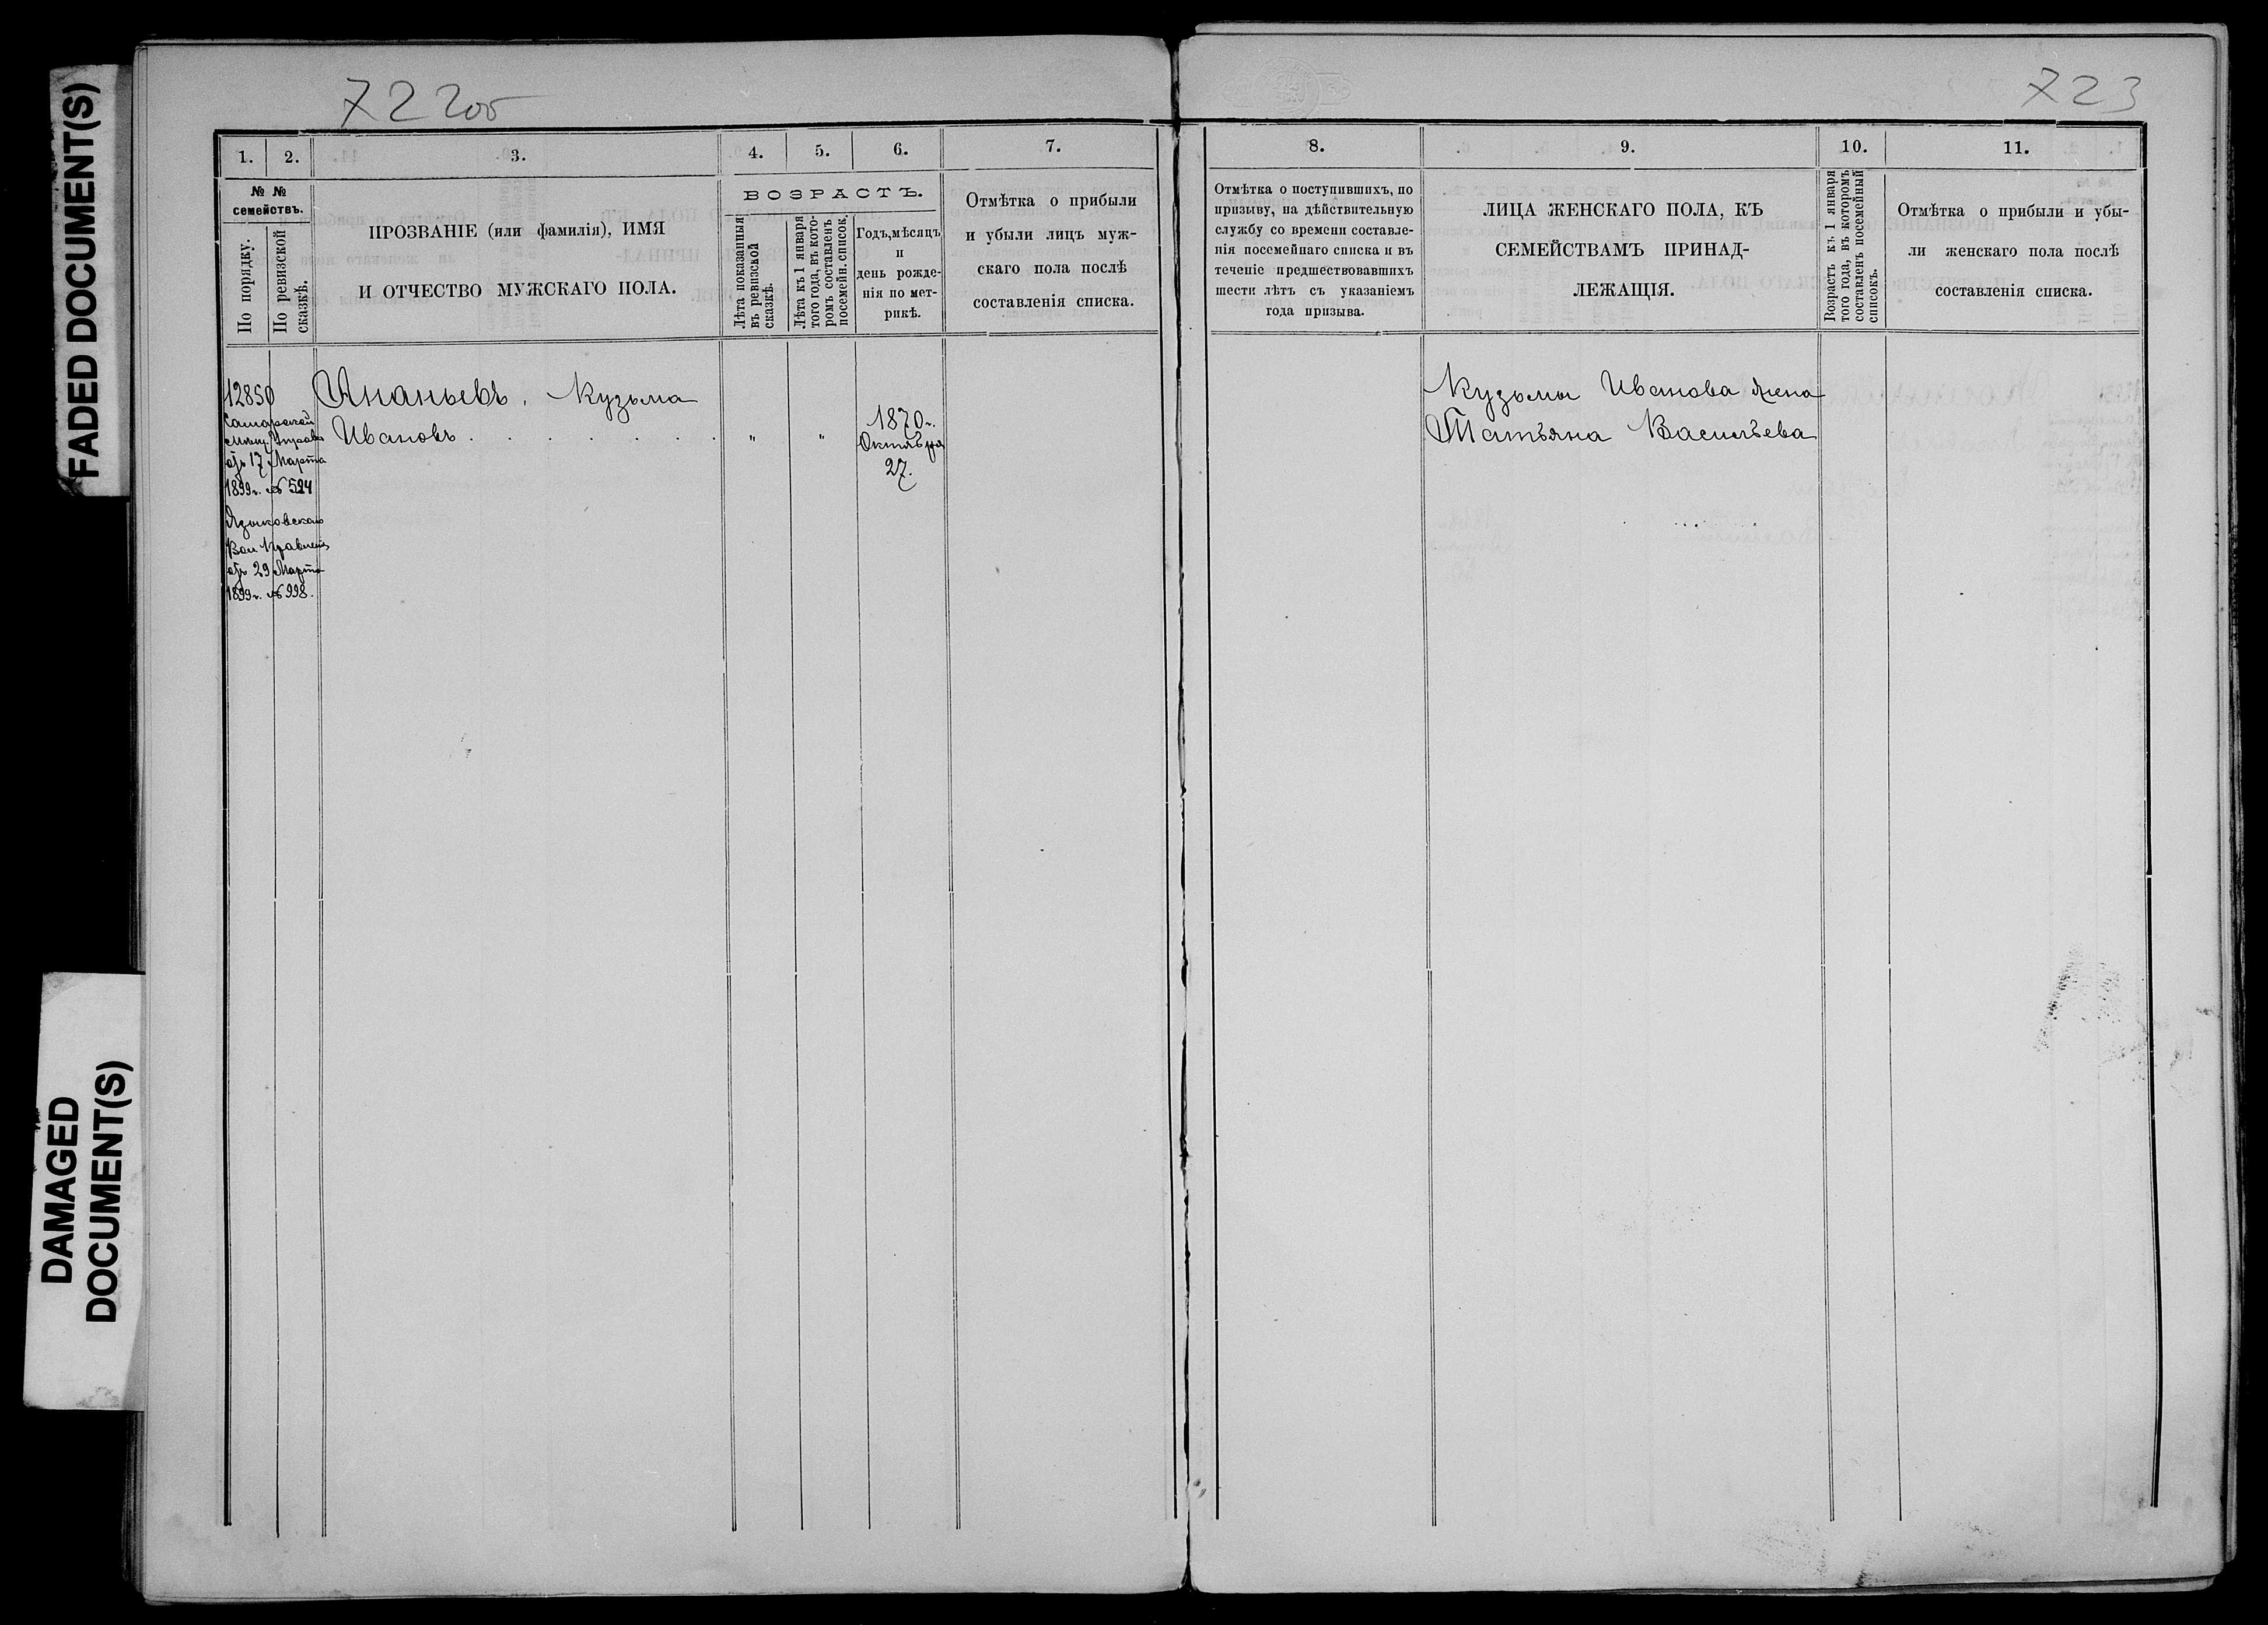 FADED DOCUMENT(S)
DAMAGED
DOCUMENT(S)
722об
1. 2. 3. 4. 5. 6. 7.
№ №
семействъ.
По порядку.
По ревизской
сказкѣ.
ПРОЗВАНІЕ (или фамилія), ИМЯ
И ОТЧЕСТВО МУЖСКАГО ПОЛА.
ВОЗРАСТЪ.
Лѣта показанныя
въ ревизской
сказкѣ.
Лѣта къ 1 января
того года, въ кото-
ромъ составленъ
посемейн. списокъ.
Годъ, мѣсяцъ
и
день рожде-
нія по мет-
рикѣ.
Отмѣтка о прибыли
и убыли лицъ муж-
скаго пола послѣ
составленія списка.
12850
Самарской
Мѣщ. Управы
отъ 17 Марта
1899 г. № 524
Языковскаго
Вол Правленія
отъ 29 Марта
1899 г. № 998.
Ананьевъ, Кузьма
Ивановъ . . . . . . " "
1870 г.
Октября
27.
723
8. 9. 10. 11.
Отмѣтка о поступившихъ, по
призыву, на дѣйствительную
службу со времени составле-
нія посемейнаго списка и въ
теченіе предшествовавшихъ
шести лѣтъ съ указаніемъ
года призыва.
ЛИЦА ЖЕНСКАГО ПОЛА, КЪ
СЕМЕЙСТВАМЪ ПРИНАД-
ЛЕЖАЩІЯ.
Возрастъ къ 1 января
того года, въ которомъ
составленъ посемейный
списокъ.
Отмѣтка о прибыли и убы-
ли женскаго пола послѣ
составленія списка.
Кузьмы Иванова жена
Татьяна Васильева